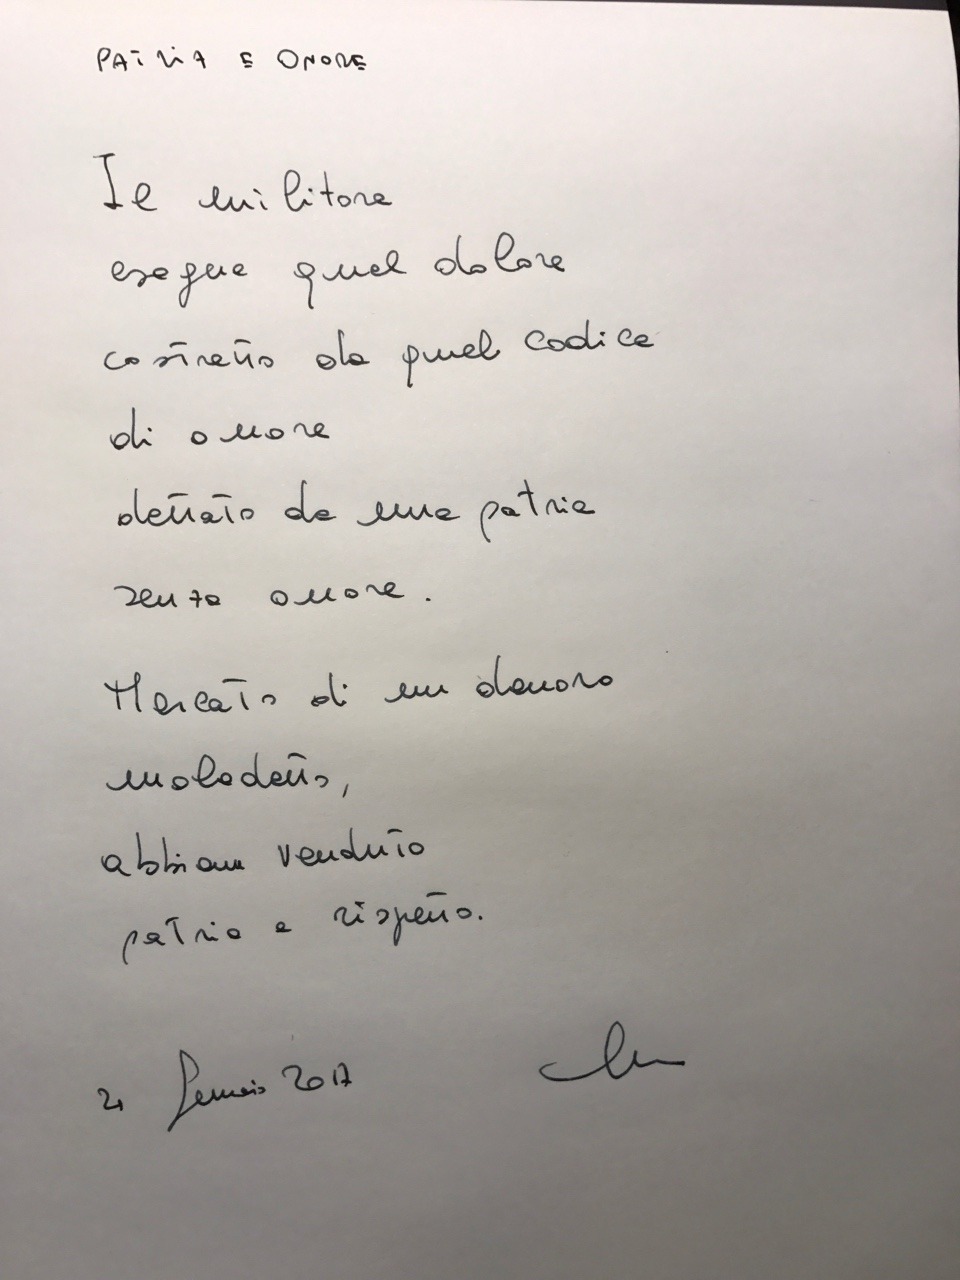 PATRIA E ONORE
Il militare
esegue quel dolore
costretto da quel codice
di onore
dettato da una patria
senza onore.
Mercato di un denaro
maledetto,
abbiam venduto
patria e rispetto.
21 Gennaio 2017